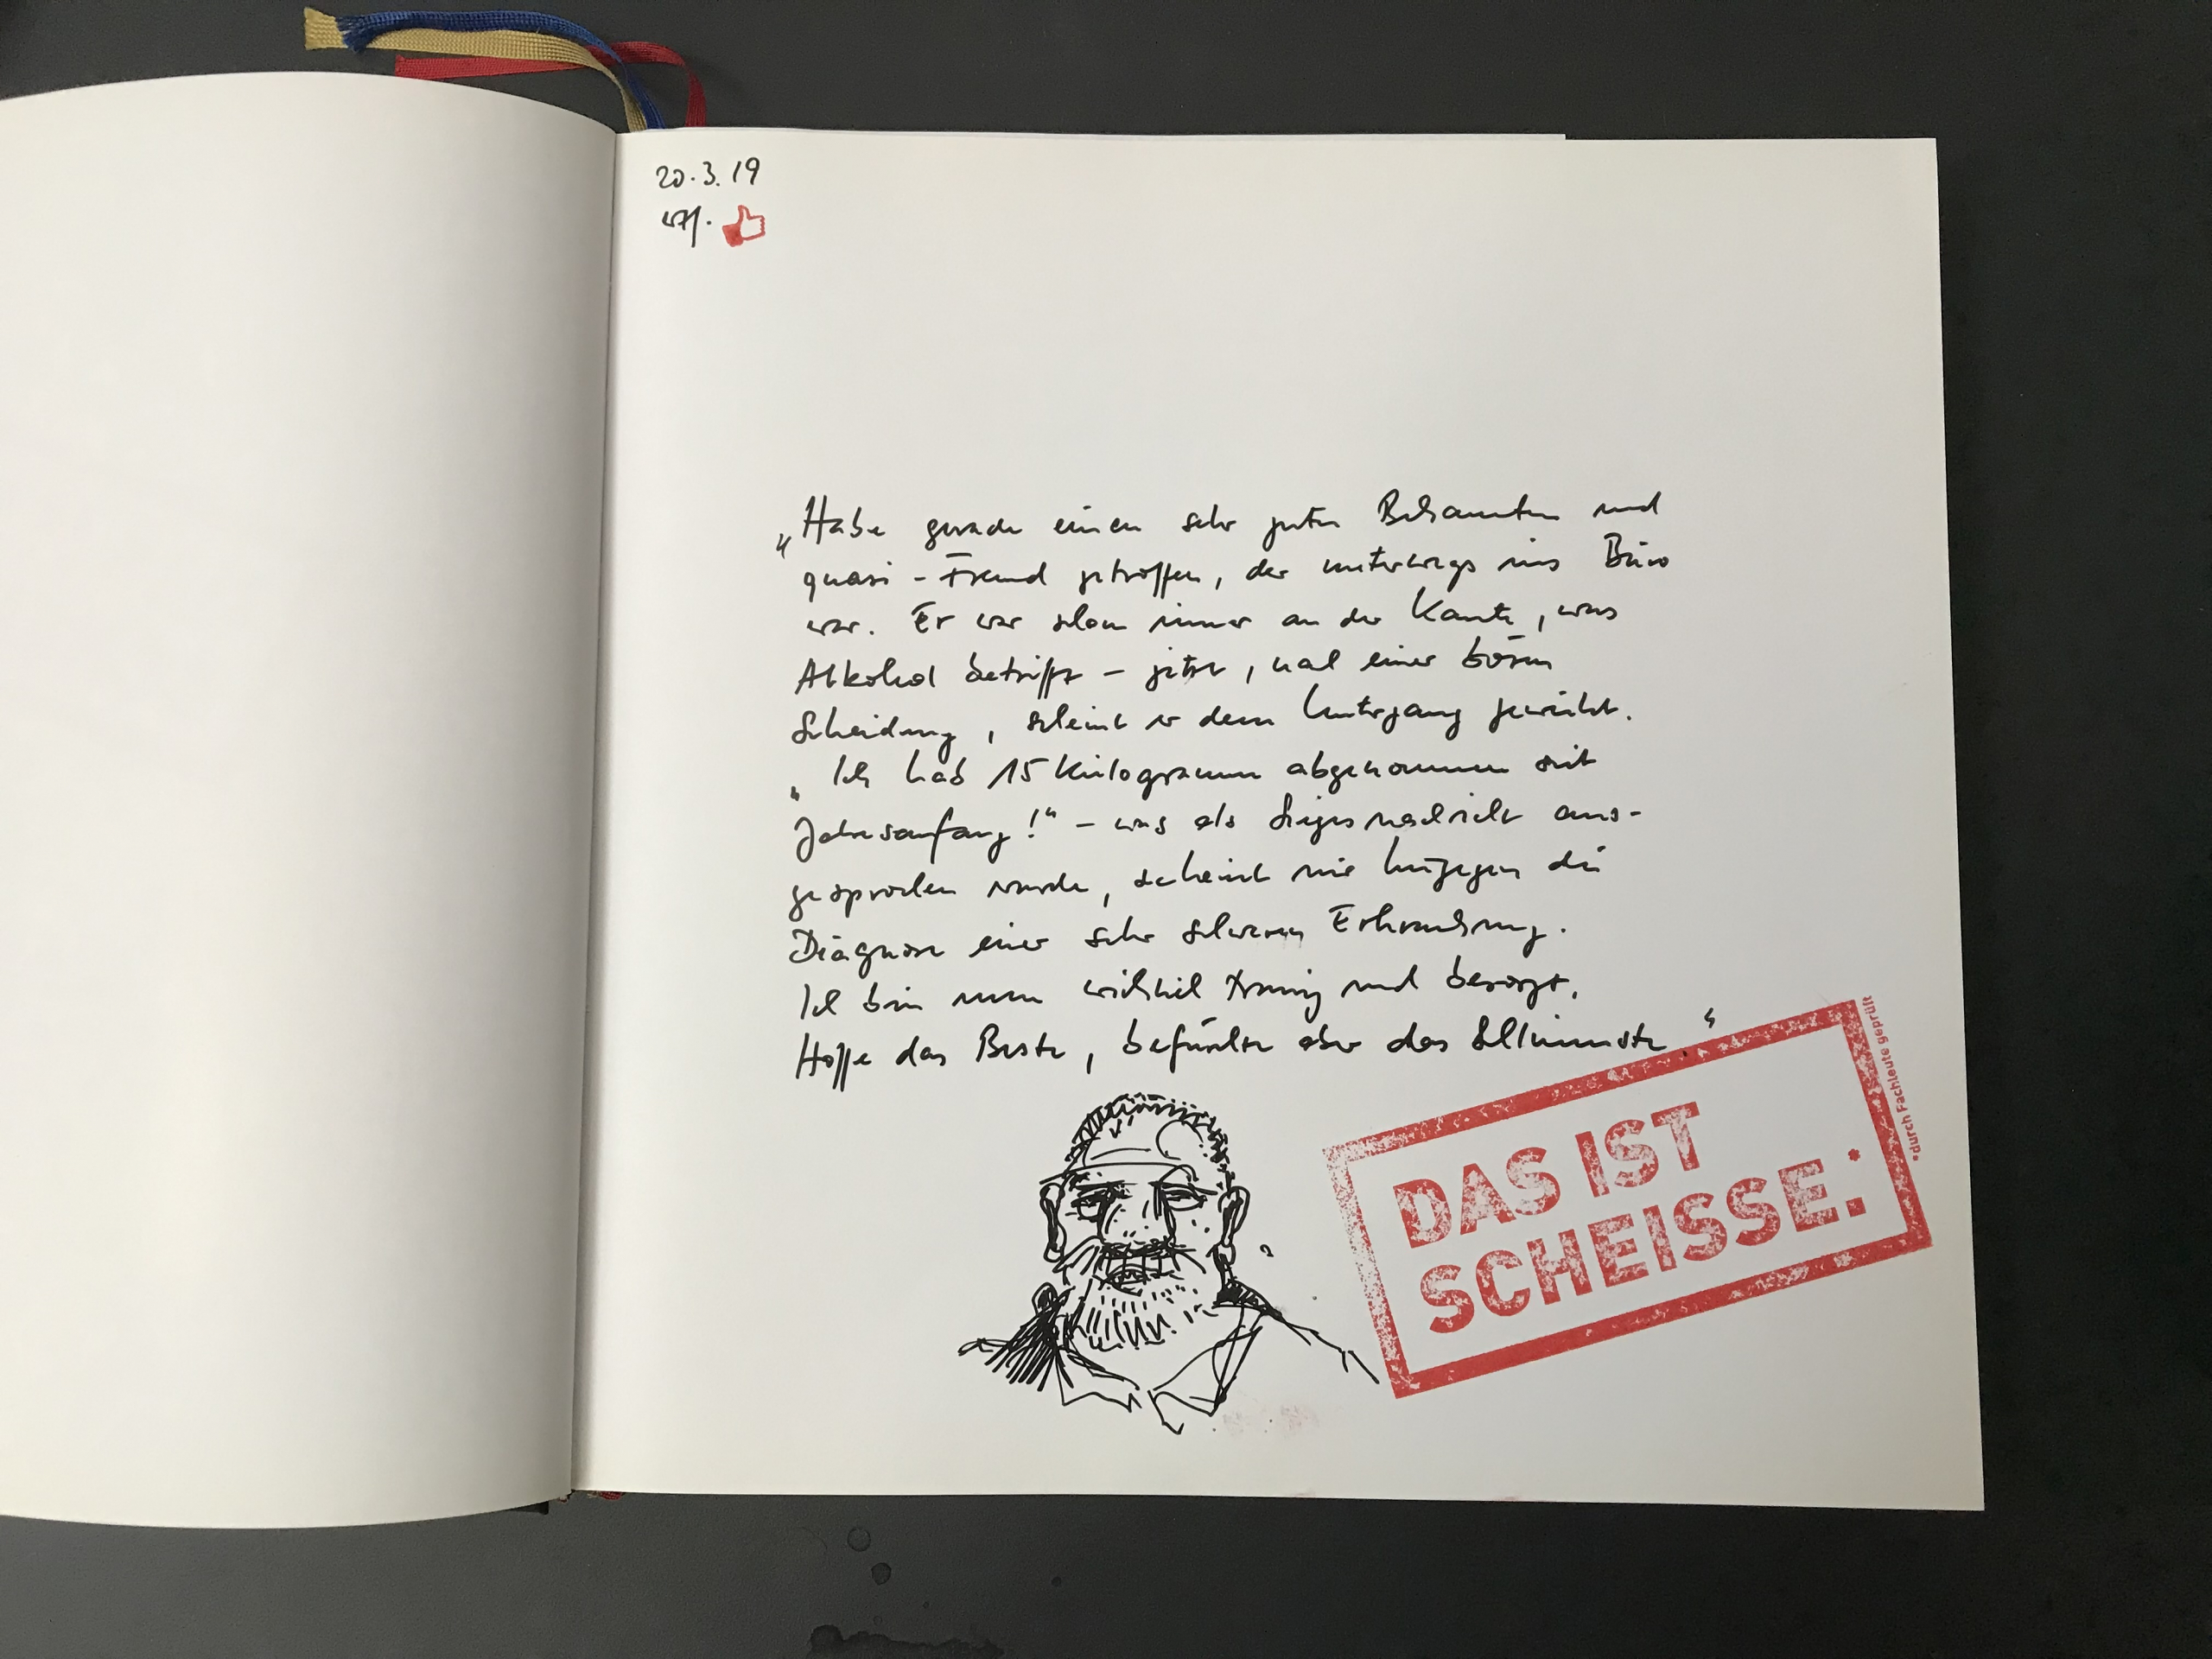 20.3.19
„Habe gerade einen sehr guten Bekannten und
quasi-Freund getroffen, der unterwegs ins Büro
war. Er war schon immer an der Kante, was
Alkohol betrifft – jetzt, nach einer bösen
Scheidung, scheint er dem Untergang geweiht.
„Ich hab 15 Kilogramm abgenommen seit
Jahresanfang!“ – was als Siegesnachricht aus-
gesprochen wurde, scheint mir hingegen die
Diagnose einer sehr schweren Erkrankung.
Ich bin nun wirklich traurig und besorgt.
Hoffe das Beste, befürchte aber das Schlimmste.“
DAS IST
SCHEISSE.*
*durch Fachleute geprüft